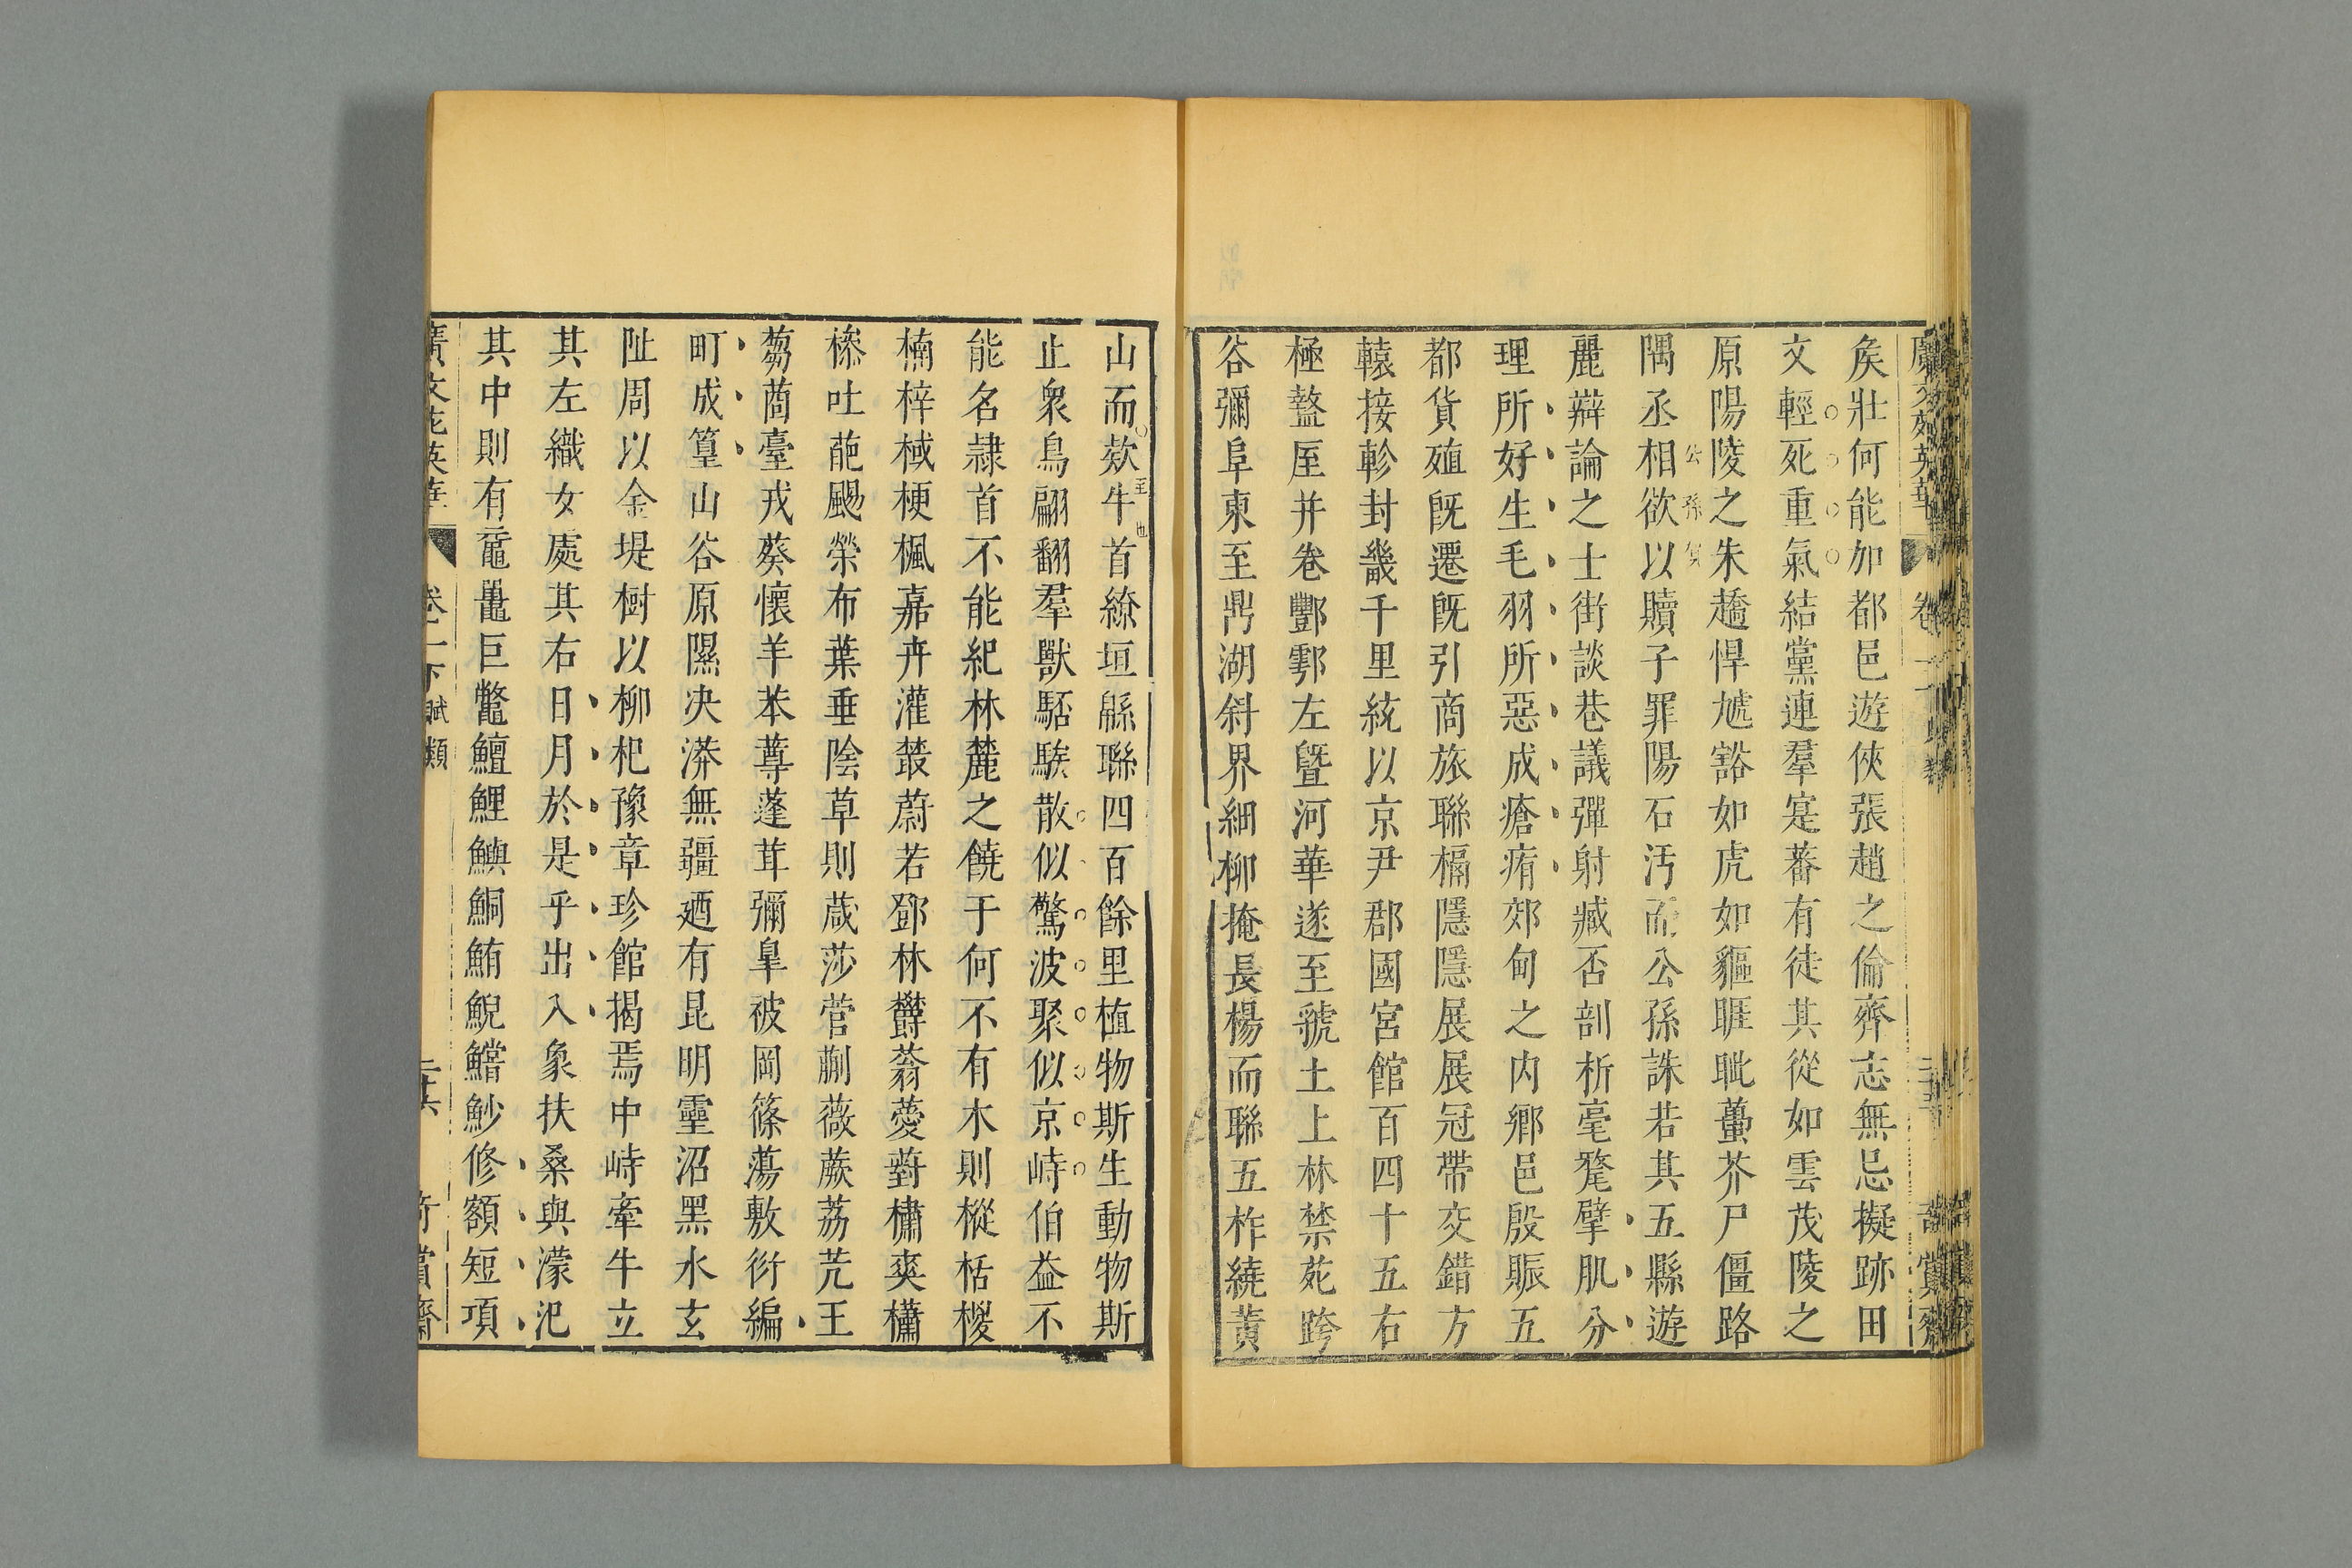 矦壯何能加都邑遊俠張趙之倫齊志無忌擬跡田
文輕死重氣結黨連羣寔蕃有徒其從如雲茂陵之
原陽陵之朱趫悍虓豁如虎如貙睚眦蠆芥尸僵路
隅丞相欲以贖子罪陽石汚而公孫誅若其五縣遊
公孫賀
麗辯論之士街談巷議彈射臧否剖析毫氂擘肌分
理所好生毛羽所惡成瘡痏郊甸之内鄉邑殷賑五
都貨殖旣遷旣引商旅聯槅隱隱展展冠帶交錯方
轅接軫封畿千里統以京尹郡國宮館百四十五右
極盩厔并卷酆鄠左曁河華遂至虢土上林禁苑跨
谷彌阜東至鼎湖斜界細柳掩長楊而聯五柞繞黃
山而欵牛首繚垣緜聯四百餘里植物斯生動物斯
至也
止衆鳥翩翻羣獸駓騃散似驚波聚似京峙伯益不
能名隷首不能紀林麓之饒于何不有木則樅栝椶
楠梓棫梗楓嘉卉灌叢蔚若鄧林欝蓊薆薱橚爽櫹
槮吐葩颺榮布葉垂陰草則葴莎菅蒯薇蕨荔芫王
蒭莔臺戎葵懷羊苯䔿蓬茸彌臯被岡篠蕩敷衍編
町成篁山谷原隰泱漭無疆廼有昆明靈沼黑水玄
阯周以金堤樹以柳杞豫章珍館揭焉中峙牽牛立
其左織女處其右日月於是乎出入象扶桑與濛汜
其中則有黿鼉巨鼈鱣鯉鱮鮦鮪鯢鱨魦修額短項
廣文苑英華 卷一下 賦類 二十六 奇賞齋